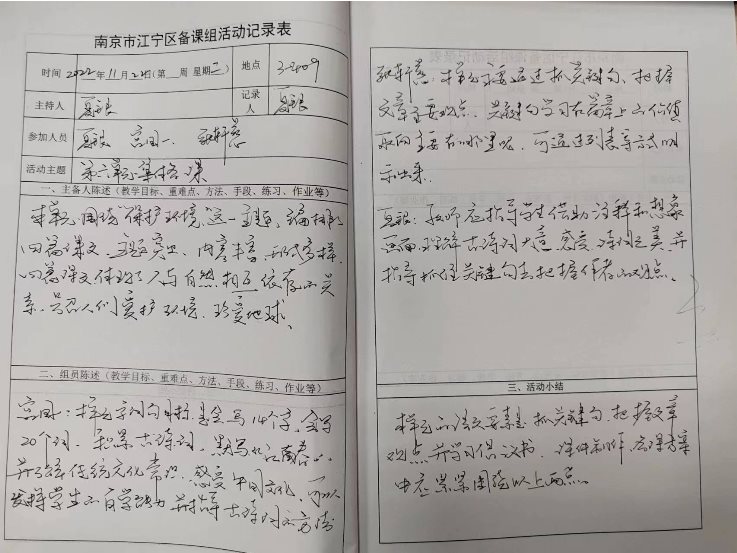 南京市江宁区备课组活动记录表
时间 2022年11月22日(第 周 星期二) 地点 3-209
主持人 夏银 记录人 夏银
参加人员 夏银 宫国一
活动主题 第六单元集体备课
一、主备人陈述(教学目标、重难点、方法、手段、练习、作业等)
本单元围绕"保护环境"这一主题,编排了
四篇课文,主题突出,内容丰富,形式多样,
四篇课文体现了人与自然相互依存的关
系,号召人们爱护环境,珍爱地球。
二、组员陈述(教学目标、重难点、方法、手段、练习、作业等)
宫国:本单元字词句目标是会写14个字,会写
20个词。积累古诗词,默写《江南春》,
并了解传统文化常识,感受中国文化,可以
发挥学生的自学能力并指导古诗词的方法
轩:本单元要通过抓关键句,把握
文章主要观点,关键句学习在篇章上的价值
取向主要在哪里呢,可通过列表等方式明
示出来。
夏银:教师应指导学生借助注释和想象
画面理解古诗词大意,感受诗词之美,并
指导抓住关键句去把握作者的观点。
三、活动小结
本单元的语文要素是抓关键句,把握文章
观点,并学习倡议书,课件制作、备课方案
中应紧紧围绕以上两点。